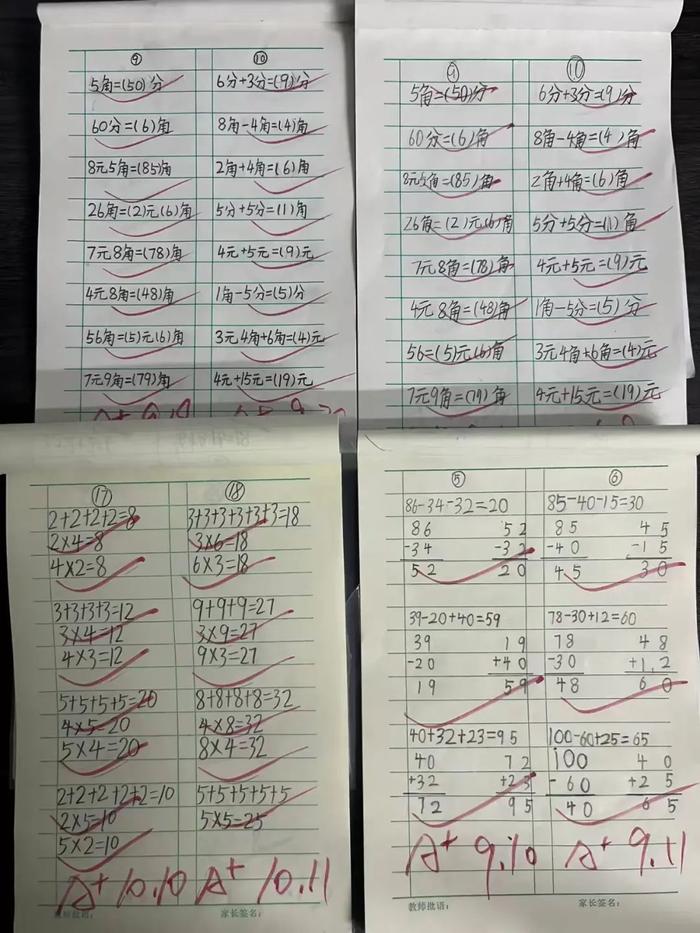 ⑨ ⑩
5角=(50)分 6分+3分=(9)分
60分=(6)角 8角-4角=(4)角
8元5角=(85)角 2角+4角=(6)角
26角=(2)元(6)角 5分+5分=(1)角
7元8角=(78)角 4元+5元=(9)元
4元8角=(48)角 1角-5分=(5)分
56角=(5)元(6)角 3元4角+6角=(4)元
7元9角=(79)角 4元+15元=(19)元
⑨ ⑩
5角=(50)分 6分+3分=(9)分
60分=(6)角 8角-4角=(4)角
8元5角=(85)角 2角+4角=(6)角
26角=(2)元(6)角 5分+5分=(1)角
7元8角=(78)角 4元+5元=(9)元
4元8角=(48)角 1角-5分=(5)分
56=(5)元(6)角 3元4角+6角=(4)元
7元9角=(79)角 4元+15元=(19)元
⑰ ⑱
2+2+2+2=8 3+3+3+3+3+3=18
2×4=8 3×6=18
4×2=8 6×3=18
3+3+3+3=12 9+9+9=27
3×4=12 3×9=27
4×3=12 9×3=27
5+5+5+5=20 8+8+8+8=32
4×5=20 4×8=32
5×4=20 8×4=32
2+2+2+2+2=10 5+5+5+5+5
2×5=10 5×5=25
5×2=10
A+ 10.10 A+ 10.11
教师批语: 家长签名:
⑤ ⑥
86-34-32=20 85-40-15=30
86 52 85 45
-34 -32 -40 -15
52 20 45 30
39-20+40=59 78-30+12=60
39 19 78 48
-20 +40 -30 +1,2
19 59 48 60
40+32+23=95 100-60+25=65
40 72 100 40
+32 +23 -60 +25
72 95 40 65
A+ 9.10 A+ 9.11
教师批语: 家长签名: